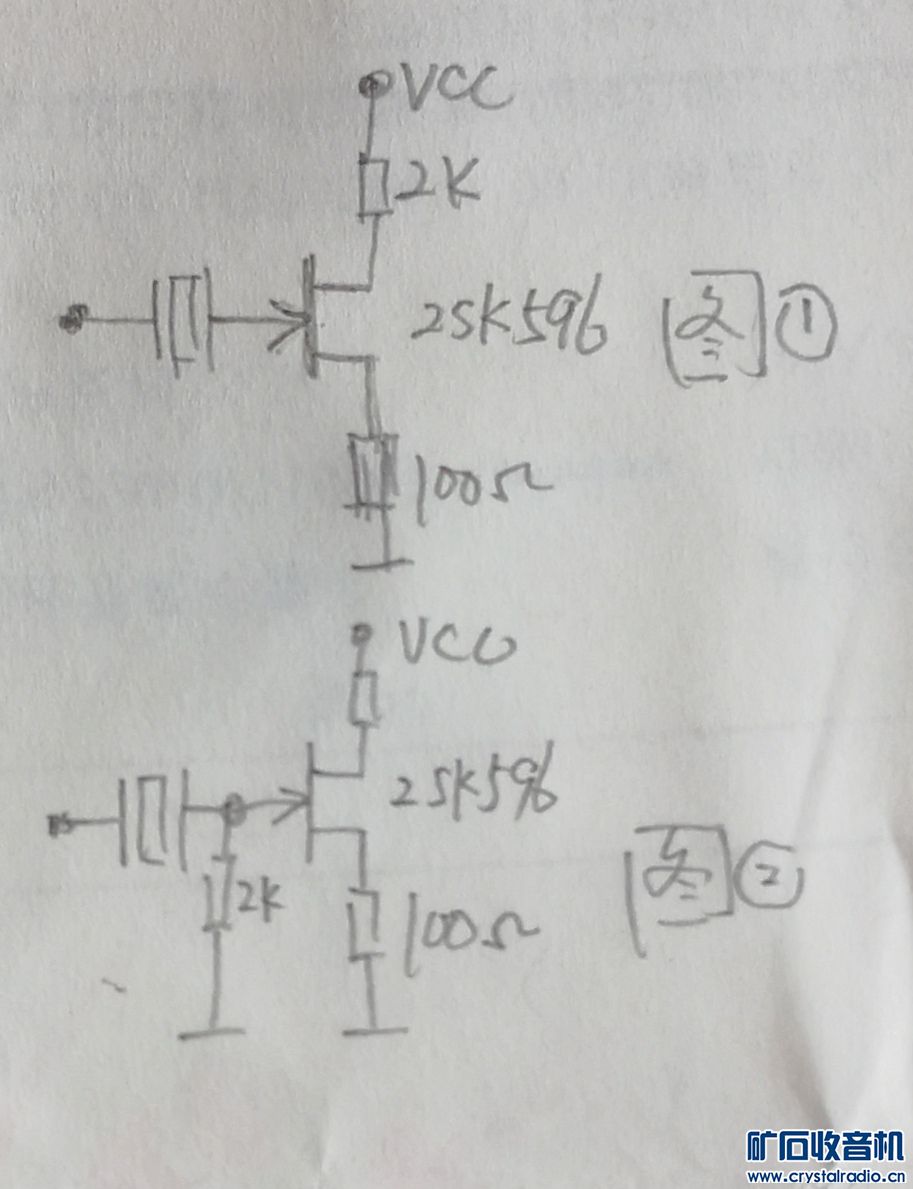 VCC
2K
2SK596 图①
100Ω
VCC
2SK596
2K
100Ω
图②
矿石收音机
www.crystalradio.cn